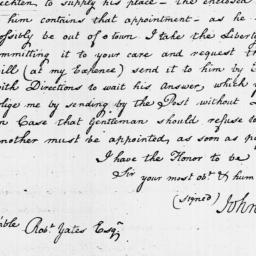 to supply his place – the enclosed
him contains that appointment – as he
ossibly be out of town I take the Libert
ommitting it to your care and request
ill (at my Expence) send it to him by
ith Directions to wait his Answer, which
lige me by sending by the Post without
n Case that Gentleman should refuse to
nother must be appointed, as soon as
I have the Honor to be
Sir your most obt & hum
(signed) John
able Robt Yates Esqr